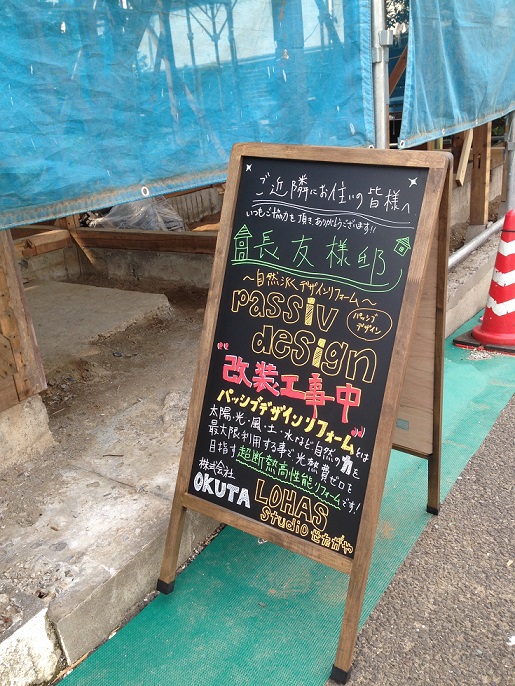 ご近隣にお住いの皆様へ
いつもご協力を頂き、ありがとうございます!!
長友様邸
～自然派デザインリフォーム～
passiv
design
パッシブ
デザイン
"改装工事中"
パッシブデザインリフォームとは
太陽・光・風・土・水など自然の力を
最大限利用する事で光熱費ゼロを
目指す超断熱高性能リフォームです!
株式会社
OKUTA
LOHAS
studio せたがや